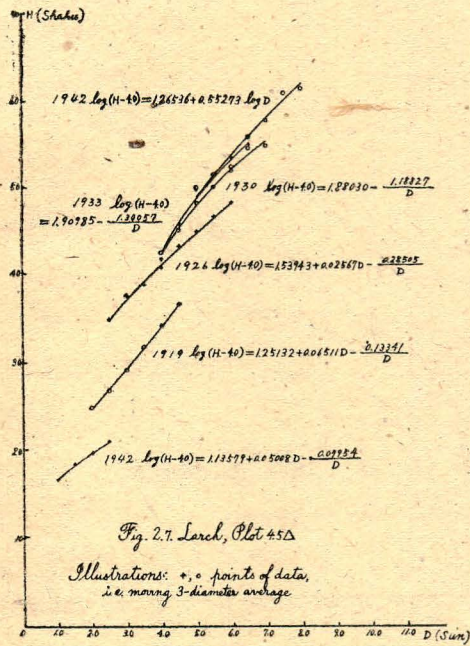 H (Shaku)
60
1942 log(H-40)=1.26536+0.55273 log D
50
1930 log(H-40)=1.88030- 1.18827/D
1933 log(H-40)
=1.90985- 1.30057/D
40
1926 log(H-40)=1.53943+0.02567D- 0.28505/D
30
1919 log(H-40)=1.25132+0.06511D- 0.13341/D
20
1942 log(H-40)=1.13579+0.05008D- 0.09954/D
10
Fig. 2.7. Larch, Plot 45Δ
Illustrations: +, o points of data,
i.e. moving 3-diameter average
1.0 2.0 3.0 4.0 5.0 6.0 7.0 8.0 9.0 10.0 11.0 D (Sun)